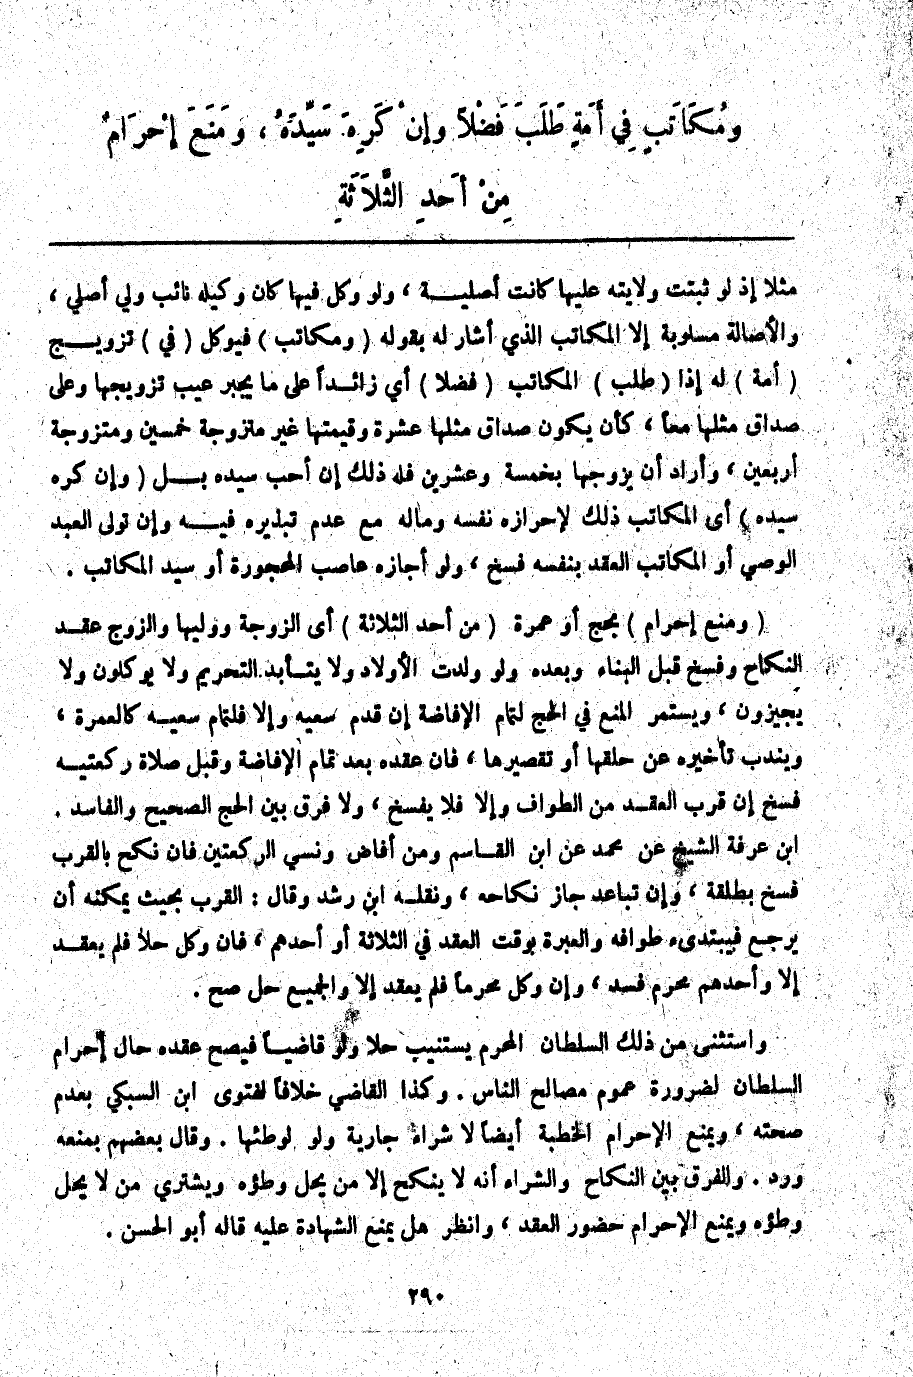 وَمُكَاتَبٍ فِي أَمَةٍ طَلَبَ فَضْلاً وإنْ كَرِهَ سَيِّدُهُ ، وَمَنَعَ إحْرَامٌ
مِنْ أَحَدِ الثَّلاَثَةِ
مثلا إذ لو ثبتت ولايته عليها كانت أصليـــة ، ولو وكل فيها كان وكيله نائب ولي أصلي ،
والأصالة مسلوبة إلا المكاتب الذي أشار له بقوله ( ومكاتب ) فيوكل ( في ) تزويـــج
( أمة ) له إذا ( طلب ) المكاتب ( فضلا ) أي زائـــداً على ما يجبر عيب تزويجها وعلى
صداق مثلها معاً ، كأن يكون صداق مثلها عشرة وقيمتها غير متزوجة خمسين ومتزوجة
أربعين ، وأراد أن يزوجها بخمسة وعشرين فله ذلك إن أحب سيده بـــل ( وإن كره
سيده ) أى المكاتب ذلك لإحرازه نفسه وماله مع عدم تبذيره فيـــه وإن تولى العبد
الوصي أو المكاتب العقد بنفسه فسخ ، ولو أجازه عاصب المحجورة أو سيد المكاتب .
( ومنع إحرام ) بحج أو عمرة ( من أحد الثلاثة ) أى الزوجة ووليها والزوج عقـــد
النكاح وفسخ قبل البناء وبعده ولو ولدت الأولاد ولا يتـأبد التحريم ولا يوكلون ولا
يجيزون ، ويستمر المنع في الحج لتمام الإفاضة إن قدم سعيه وإلا فلتمام سعيـــه كالعمرة ،
ويندب تأخيره عن حلقها أو تقصيرها ، فان عقده بعد تمام الإفاضة وقبل صلاة ركعتيـــه
فسخ إن قرب العقـــد من الطواف وإلا فلا يفسخ ، ولا فرق بين الحج الصحيح والفاسد .
ابن عرفة الشيخ عن محمد عن ابن القـــاسم ومن أفاض ونسي الركعتين فان نكح بالقرب
فسخ بطلقة ، وإن تباعد جاز نكاحه ، ونقلـــه ابن رشد وقال : القرب بحيث يمكنه أن
يرجـــع فيبتدىء طوافه والعبرة بوقت العقد في الثلاثة أو أحدهم ، فان وكل حلاً فلم يعقـــد
إلا وأحدهم محرم فسد ، وإن وكل محرماً فلم يعقد إلا والجميـــع حل صح .
واستثنى من ذلك السلطان المحرم يستنيب حلا ولو قاضيـــاً فيصح عقده حال إحرام
السلطان لضرورة عموم مصالح الناس . وكذا القاضي خلافاً لفتوى ابن السبكي بعدم
صحته ، ويمنع الإحرام الخطبة أيضاً لا شراء جارية ولو لوطئها . وقال بعضهم بمنعه
ورد . والفرق بين النكاح والشراء أنه لا ينكح إلا من يحل وطؤه ويشتري من لا يحل
وطؤه ويمنع الإحرام حضور العقد ، وانظر هل يمنع الشهادة عليه قاله أبو الحسن .
٢٩٠